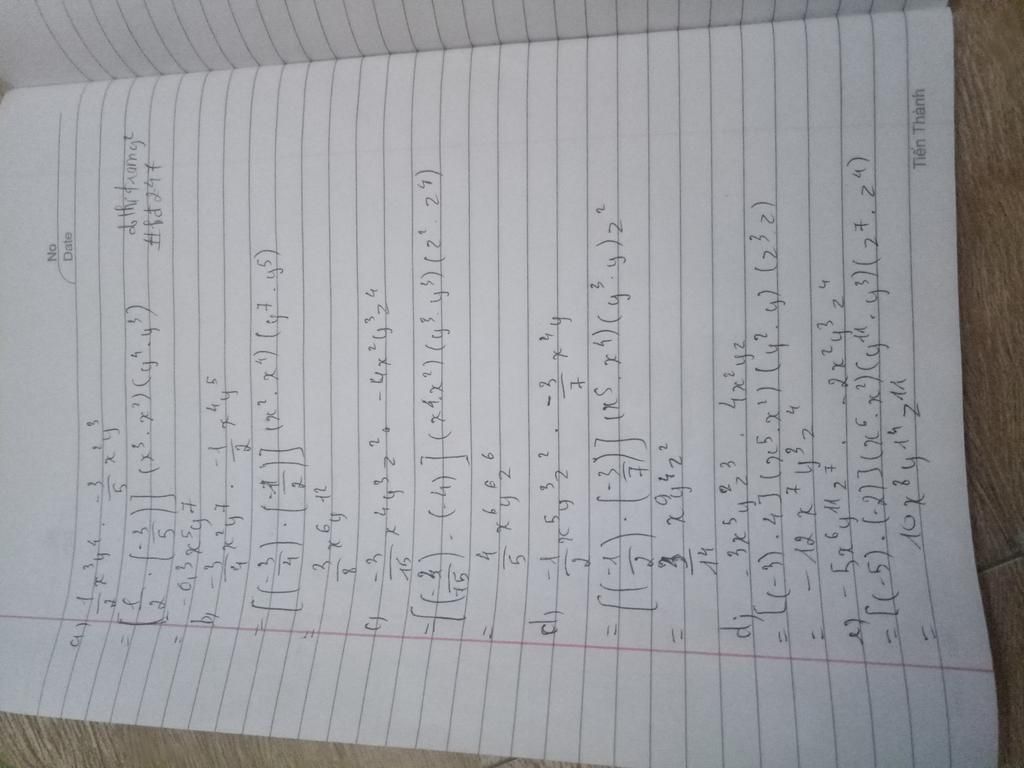 No
Date
a) 1/2 x³y⁴ . -3/5 x²y³
= [1/2 . (-3/5)] (x³.x²)(y⁴.y³)
= -0,3x⁵y⁷
b) -3/4 x²y⁷ . -1/2 x⁴y⁵
= [(-3/4) . (-1/2)] (x².x⁴)(y⁷.y⁵)
= 3/8 x⁶y¹²
c) -3/15 x⁴y³z² . -4x²y³z⁴
= [(-3/15) . (-4)] (x⁴.x²)(y³.y³)(z².z⁴)
= 4/5 x⁶y⁶z⁶
d) -1/2 x⁵y³z² . -3/7 x⁴y
= [(-1/2) . (-3/7)] (x⁵.x⁴)(y³.y)z²
= 3/14 x⁹y⁴z²
d) -3x⁵y²z³ . 4x²yz
= [(-3) . 4] (x⁵x²)(y².y)(z³z)
= -12x⁷y³z⁴
e) -5x⁶y¹¹z⁷ . -2x²y³z⁴
= [(-5) . (-2)] (x⁶.x²)(y¹¹.y³)(z⁷.z⁴)
= 10x⁸y¹⁴z¹¹
Tiến Thành